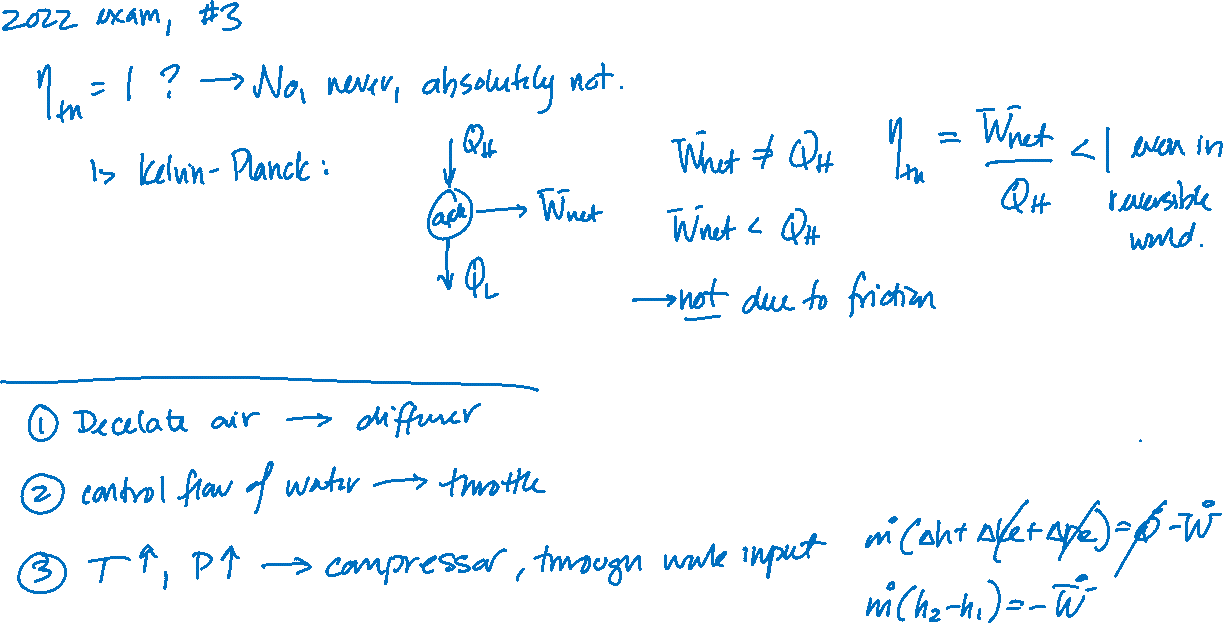 2022 exam, #3
η_th = 1 ? → No, never, absolutely not.
↳ Kelvin-Planck:
Q_H
W_net
Q_L
W_net ≠ Q_H
W_net < Q_H
→ not due to friction
η_th = W_net / Q_H < 1 even in
reversible
world.
① Decelate air → diffuser
② control flow of water → throttle
③ T↑, P↑ → compressor, through work input
ṁ(Δh + Δke + Δpe) = Q̇ - Ẇ
ṁ(h₂-h₁) = -Ẇ